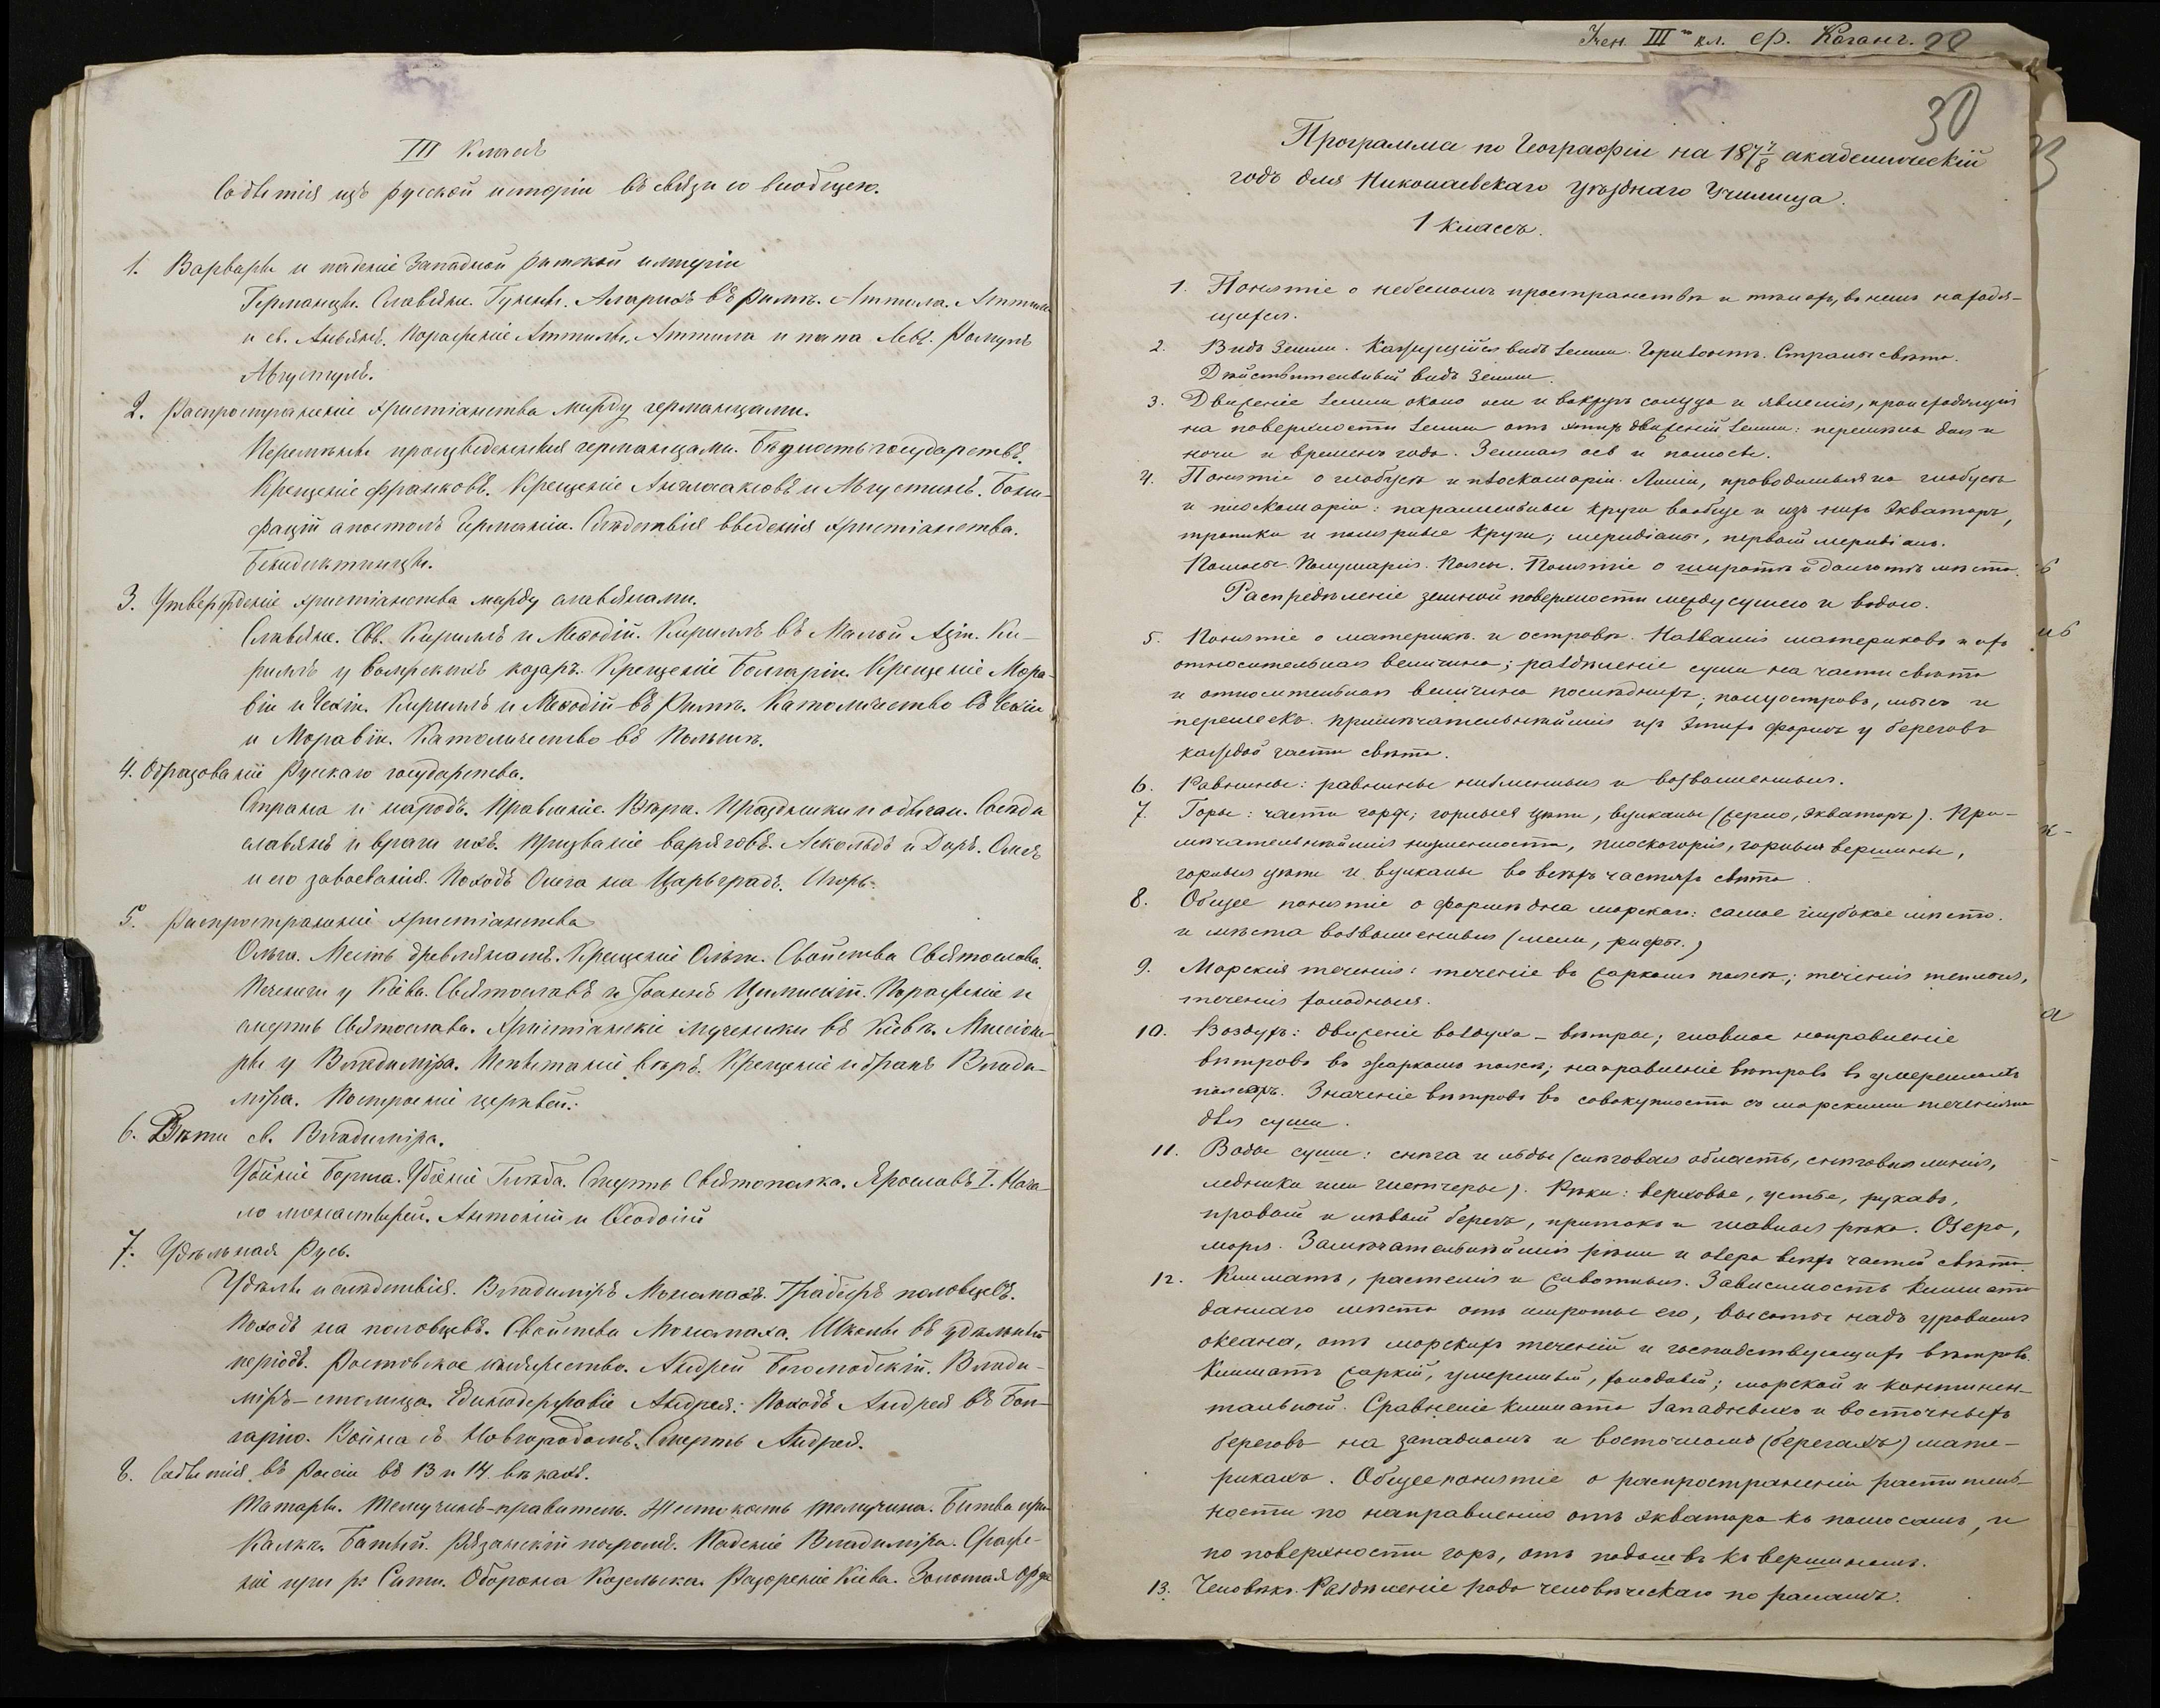 III Классъ
Событія изъ русской исторіи въ связи со всеобщею.
1. Варвары и паденіе Западной римской имперіи
Германцы. Славяне. Гунны. Аларихъ въ Римѣ. Аттила. Аттила
и св. Аньянъ. Пораженіе Аттилы. Аттила и папа Левъ. Ромулъ
Августулъ.
2. Распространеніе христіанства между германцами.
Перемѣны произведенныя германцами. государствъ.
Крещеніе франковъ. Крещеніе Англосаксовъ и Августинъ. Бони-
фацій апостолъ Германіи. Слѣдствія введенія христіанства.
Бенедиктинцы.
3. Утвержденіе христіанства между славянами.
Славяне. Свв. Кириллъ и Меѳодій. Кириллъ въ Малой Азіи. Ки-
риллъ у козаръ. Крещеніе Болгаріи. Крещеніе Мора-
віи и Чехіи. Кириллъ и Меѳодій въ Римѣ. Католичество въ Чехіи
и Моравіи. Католичество въ Польшѣ.
4. Образованіе Русскаго государства.
Страна и народъ. Правленіе. Вѣра. Праздники и обычаи. Сосѣди
славянъ и враги ихъ. Призваніе варяговъ. Аскольдъ и Диръ. Олегъ
и его завоеванія. Походъ Олега на Царьградъ. Игорь.
5. Распространеніе христіанства
Ольга. Месть древлянамъ. Крещеніе Ольги. Свойства Святослава.
Печенеги у Кіева. Святославъ и Іоаннъ Цимисхій. Пораженіе и
смерть Святослава. Христіанскіе мученики въ Кіевѣ. Миссіоне-
ры у Владиміра. Испытаніе вѣръ. Крещеніе и бракъ Влади-
міра. Построеніе церквей.
6. Дѣти св. Владиміра.
Убіеніе Бориса. Убіеніе Глѣба. Смерть Святополка. Ярославъ I. Нача-
ло монастырей. Антоній и Ѳеодосій
7. Удѣльная Русь.
Удѣлы и слѣдствія. Владиміръ Мономахъ. Грабежъ половцевъ.
Походъ на половцевъ. Свойства Мономаха. Школы въ удѣльный
періодъ. Ростовское княжество. Андрей Боголюбскій. Влади-
міръ - столица. Единодержавіе Андрея. Походъ Андрея въ Бол-
гарію. Война съ Новгородомъ. Смерть Андрея.
8. Событія въ Россіи въ 13 и 14 вѣкахъ.
Татары. Темучинъ-правитель. Жестокость Темучина. Битва при
Калкѣ. Батый. Рязанскій погромъ. Паденіе Владиміра. Сраже-
ніе при р. Сити. Оборона Козельска. Разореніе Кіева. Золотая Орда
Учен. III кл. Еф. Каганъ.
30
Программа по Географіи на 187 7/8 академическій
годъ для Николаевскаго уѣзднаго Училища.
1 классъ.
1. Понятіе о небесномъ пространствѣ и тѣлахъ, въ немъ находя-
щихся.
2. Видъ Земли. Кажущійся видъ земли. Горизонтъ. Страны свѣта.
Дѣйствительный видъ Земли.
3. Движеніе земли около оси и вокругъ солнца и явленія, происходящія
на поверхности земли отъ этихъ движеній земли: перемѣна дня и
ночи и временъ года. Земная ось и полюсы.
4. Понятіе о глобусѣ и плоскошаріи. Линіи, проводимыя на глобусѣ
и плоскошаріи: параллельные круги вообще и изъ нихъ Экваторъ,
тропики и полярные круги; меридіаны, первый меридіанъ.
Полюсы. Полушарія. Поясы. Понятіе о широтѣ и долготѣ мѣста.
Распредѣленіе земной поверхности между сушею и водою.
5. Понятіе о материкѣ и островѣ. Названія материковъ и ихъ
относительная величина; раздѣленіе суши на части свѣта
и относительная величина послѣднихъ; полуостровъ, мысъ и
перешеекъ. примѣчательнѣйшія изъ этихъ формъ у береговъ
каждой части свѣта.
6. Равнины: равнины низменныя и возвышенныя.
7. Горы: части горы; горныя цѣпи, вулканы (жерло, экваторъ). При-
мѣчательнѣйшія низменности, плоскогорія, горныя вершины,
горныя цѣпи и вулканы во всѣхъ частяхъ свѣта.
8. Общее понятіе о формѣ дна морскаго: самое глубокое мѣсто.
и мѣста возвышенныя (мели, рифы.)
9. Морскія теченія: теченіе въ жаркомъ поясѣ; теченія теплыя,
теченія холодныя.
10. Воздухъ: движеніе воздуха - вѣтры; главное направленіе
вѣтровъ въ жаркомъ поясѣ; направленіе вѣтровъ въ умѣренныхъ
поясахъ. Значеніе вѣтровъ въ совокупности съ морскими теченіями
для суши.
11. Воды суши: снѣга и льды (снѣговая область, снѣговая линія,
ледники или глетчеры). Рѣки: верховье, устье, рукавъ,
правый и лѣвый берегъ, притокъ и главная рѣка. Озера,
моря. Замѣчательнѣйшія рѣки и озера всѣхъ частей свѣта.
12. Климатъ, растенія и животныя. Зависимость климата
даннаго мѣста отъ широты его, высоты надъ уровнемъ
океана, отъ морскихъ теченій и господствующихъ вѣтровъ.
Климатъ жаркій, умѣренный, холодный; морской и континен-
тальный. Сравненіе климата западныхъ и восточныхъ
береговъ на западномъ и восточномъ (берегахъ) мате-
рикахъ. Общее понятіе о распространеніи раститель-
ности по направленію отъ экватора къ полюсамъ, и
по поверхности горъ, отъ подошвъ къ вершинамъ.
13. Человѣкъ. Раздѣленіе рода человѣческаго по расамъ.